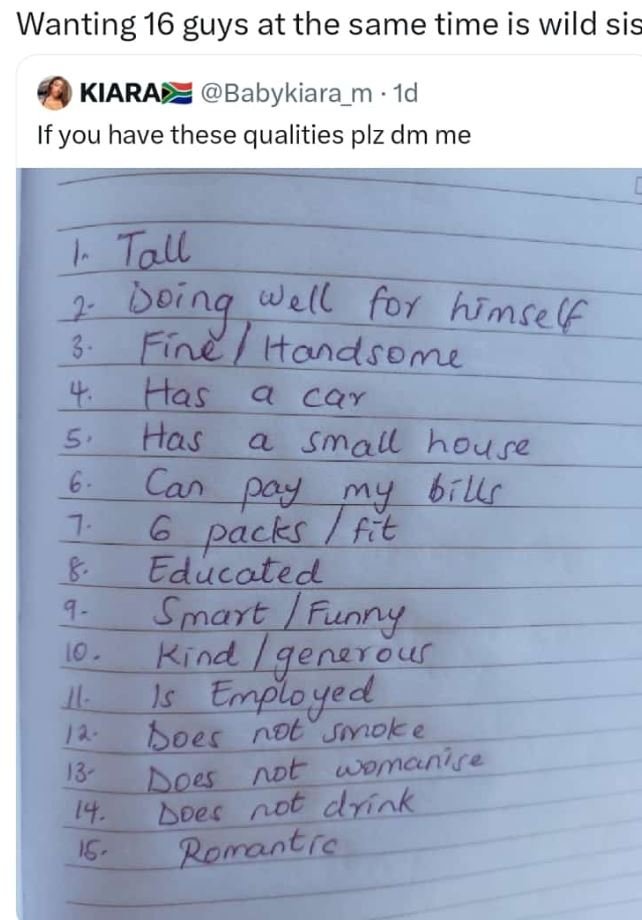 Wanting 16 guys at the same time is wild sis
KIARA🇿🇦 @Babykiara_m · 1d
If you have these qualities plz dm me
1. Tall
2- Doing well for himself
3. Fine / Handsome
4. Has a car
5. Has a small house
6. Can pay my bills
7. 6 packs / fit
8. Educated
9- Smart / Funny
10. Kind / generous
11. Is Employed
12. Does not smoke
13- Does not womanise
14. Does not drink
15. Romantic